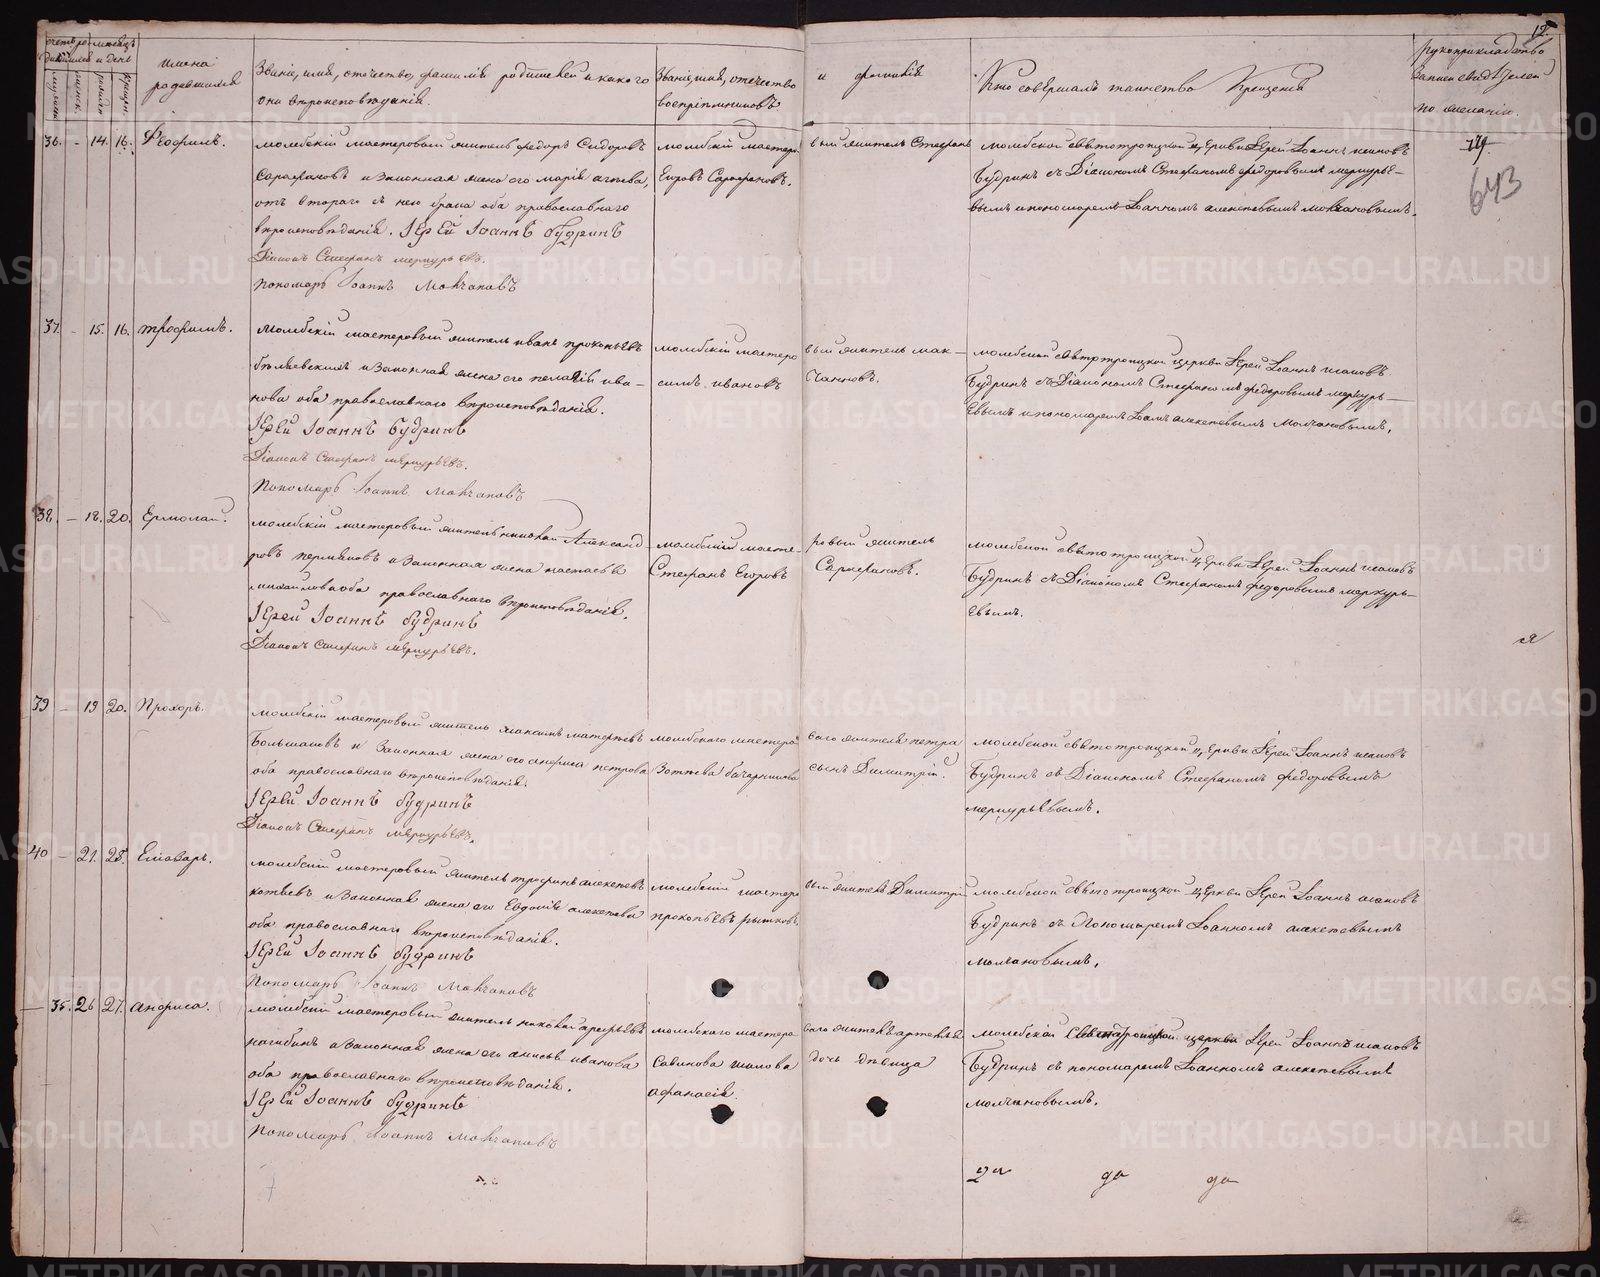 12.
Счетъ родившихся
Мѣсяцъ и день
мужеск.
женск.
рожденія
крещен.
Имена родившихся
Званіе, имя, отечество, фамилія родителей и какого
они вѣроисповѣданія.
Званіе, имя, отечество и фамилія
воспріемниковъ.
Кто совершалъ таинство Крещенія
Рукоприкладство
записи свидѣтелей
по желанію.
36. – 14. 16. Феофилъ.
молебскій мастеровый житель федоръ Сидоровъ
Сарафановъ и законная жена его марія
отъ втораго съ нею брака оба православнаго
вѣроисповѣданія. Іерей Іоаннъ будринъ
Діаконъ Стефанъ меркурьевъ.
Пономарь Іоаннъ Молчановъ
молебскій мастеровый житель Стефанъ
Егоровъ Сарафановъ.
молебской свѣтотроицкой церкви Іерей Іоаннъ исаковъ
Будринъ съ Діакономъ Стефаномъ федоровымъ меркурье–
вымъ и пономаремъ Іоанномъ алексѣевымъ молчановымъ.
643
37. – 15. 16. трофимъ.
молебскій мастеровый житель иванъ прокопьевъ
бѣляевскихъ и законная жена его пелагія ива–
нова оба православнаго вѣроисповѣданія.
Іерей Іоаннъ будринъ
Діаконъ Стефанъ меркурьевъ.
Пономарь Іоаннъ молчановъ
молебскій мастеровый житель мак–
симъ ивановъ
молебской свѣтотроицкой церкви Іерей Іоаннъ исаковъ
Будринъ съ Діакономъ Стефаномъ федоровымъ меркурь–
евымъ и пономаремъ Іоан. алексѣевымъ Молчановымъ.
38. – 18. 20. Ермолай.
молебскій мастеровый житель николай Александ–
ровъ пермяковъ и законная жена настасья
михайлова оба православнаго вѣроисповѣданія.
Іерей Іоаннъ будринъ
Діаконъ Стефанъ меркурьевъ.
молебскій мастеровый житель
Стефанъ Егоровъ Сарафановъ.
молебской свѣтотроицкой церкви Іерей Іоаннъ исаковъ
Будринъ съ Діакономъ Стефаномъ федоровымъ меркурь–
евымъ.
39 – 19 20. Прохоръ.
молебскій мастеровый житель максимъ матвеевъ
Большаковъ и законная жена его анфиса петрова
оба православнаго вѣроисповѣданія.
Іерей Іоаннъ будринъ
Діаконъ Стефанъ меркурьевъ.
молебского мастероваго жителя петра
Зотѣева сынъ Димитрій.
молебской свѣтотроицкой церкви Іерей Іоаннъ исаковъ
Будринъ съ Діакономъ Стефаномъ федоровымъ
меркурьевымъ.
40 – 21. 25. Еліазаръ.
молебскій мастеровый житель трофимъ алексѣевъ
и законная жена его Евдокія алексѣева
оба православнаго вѣроисповѣданія.
Іерей Іоаннъ будринъ
Пономарь Іоаннъ Молчановъ
молебскій мастеровый житель Димитрій
прокопьевъ рыжковъ
молебской свѣтотроицкой церкви Іерей Іоаннъ исаковъ
Будринъ съ Пономаремъ Іоанномъ алексѣевымъ
молчановымъ.
– 35. 26 27. анфиса.
молебскій мастеровый житель николай арефьевъ
нагибинъ и законная жена его анисья иванова
оба православнаго вѣроисповѣданія.
Іерей Іоаннъ будринъ
Пономарь Іоаннъ молчановъ
молебского мастероваго жителя артемья
Савинова шилова дочь дѣвица
афанасія.
молебской свѣтотроицкой церкви Іерей Іоаннъ исаковъ
Будринъ съ пономаремъ Іоанномъ алексѣевымъ
молчановымъ.
METRIKI.GASO-URAL.RU